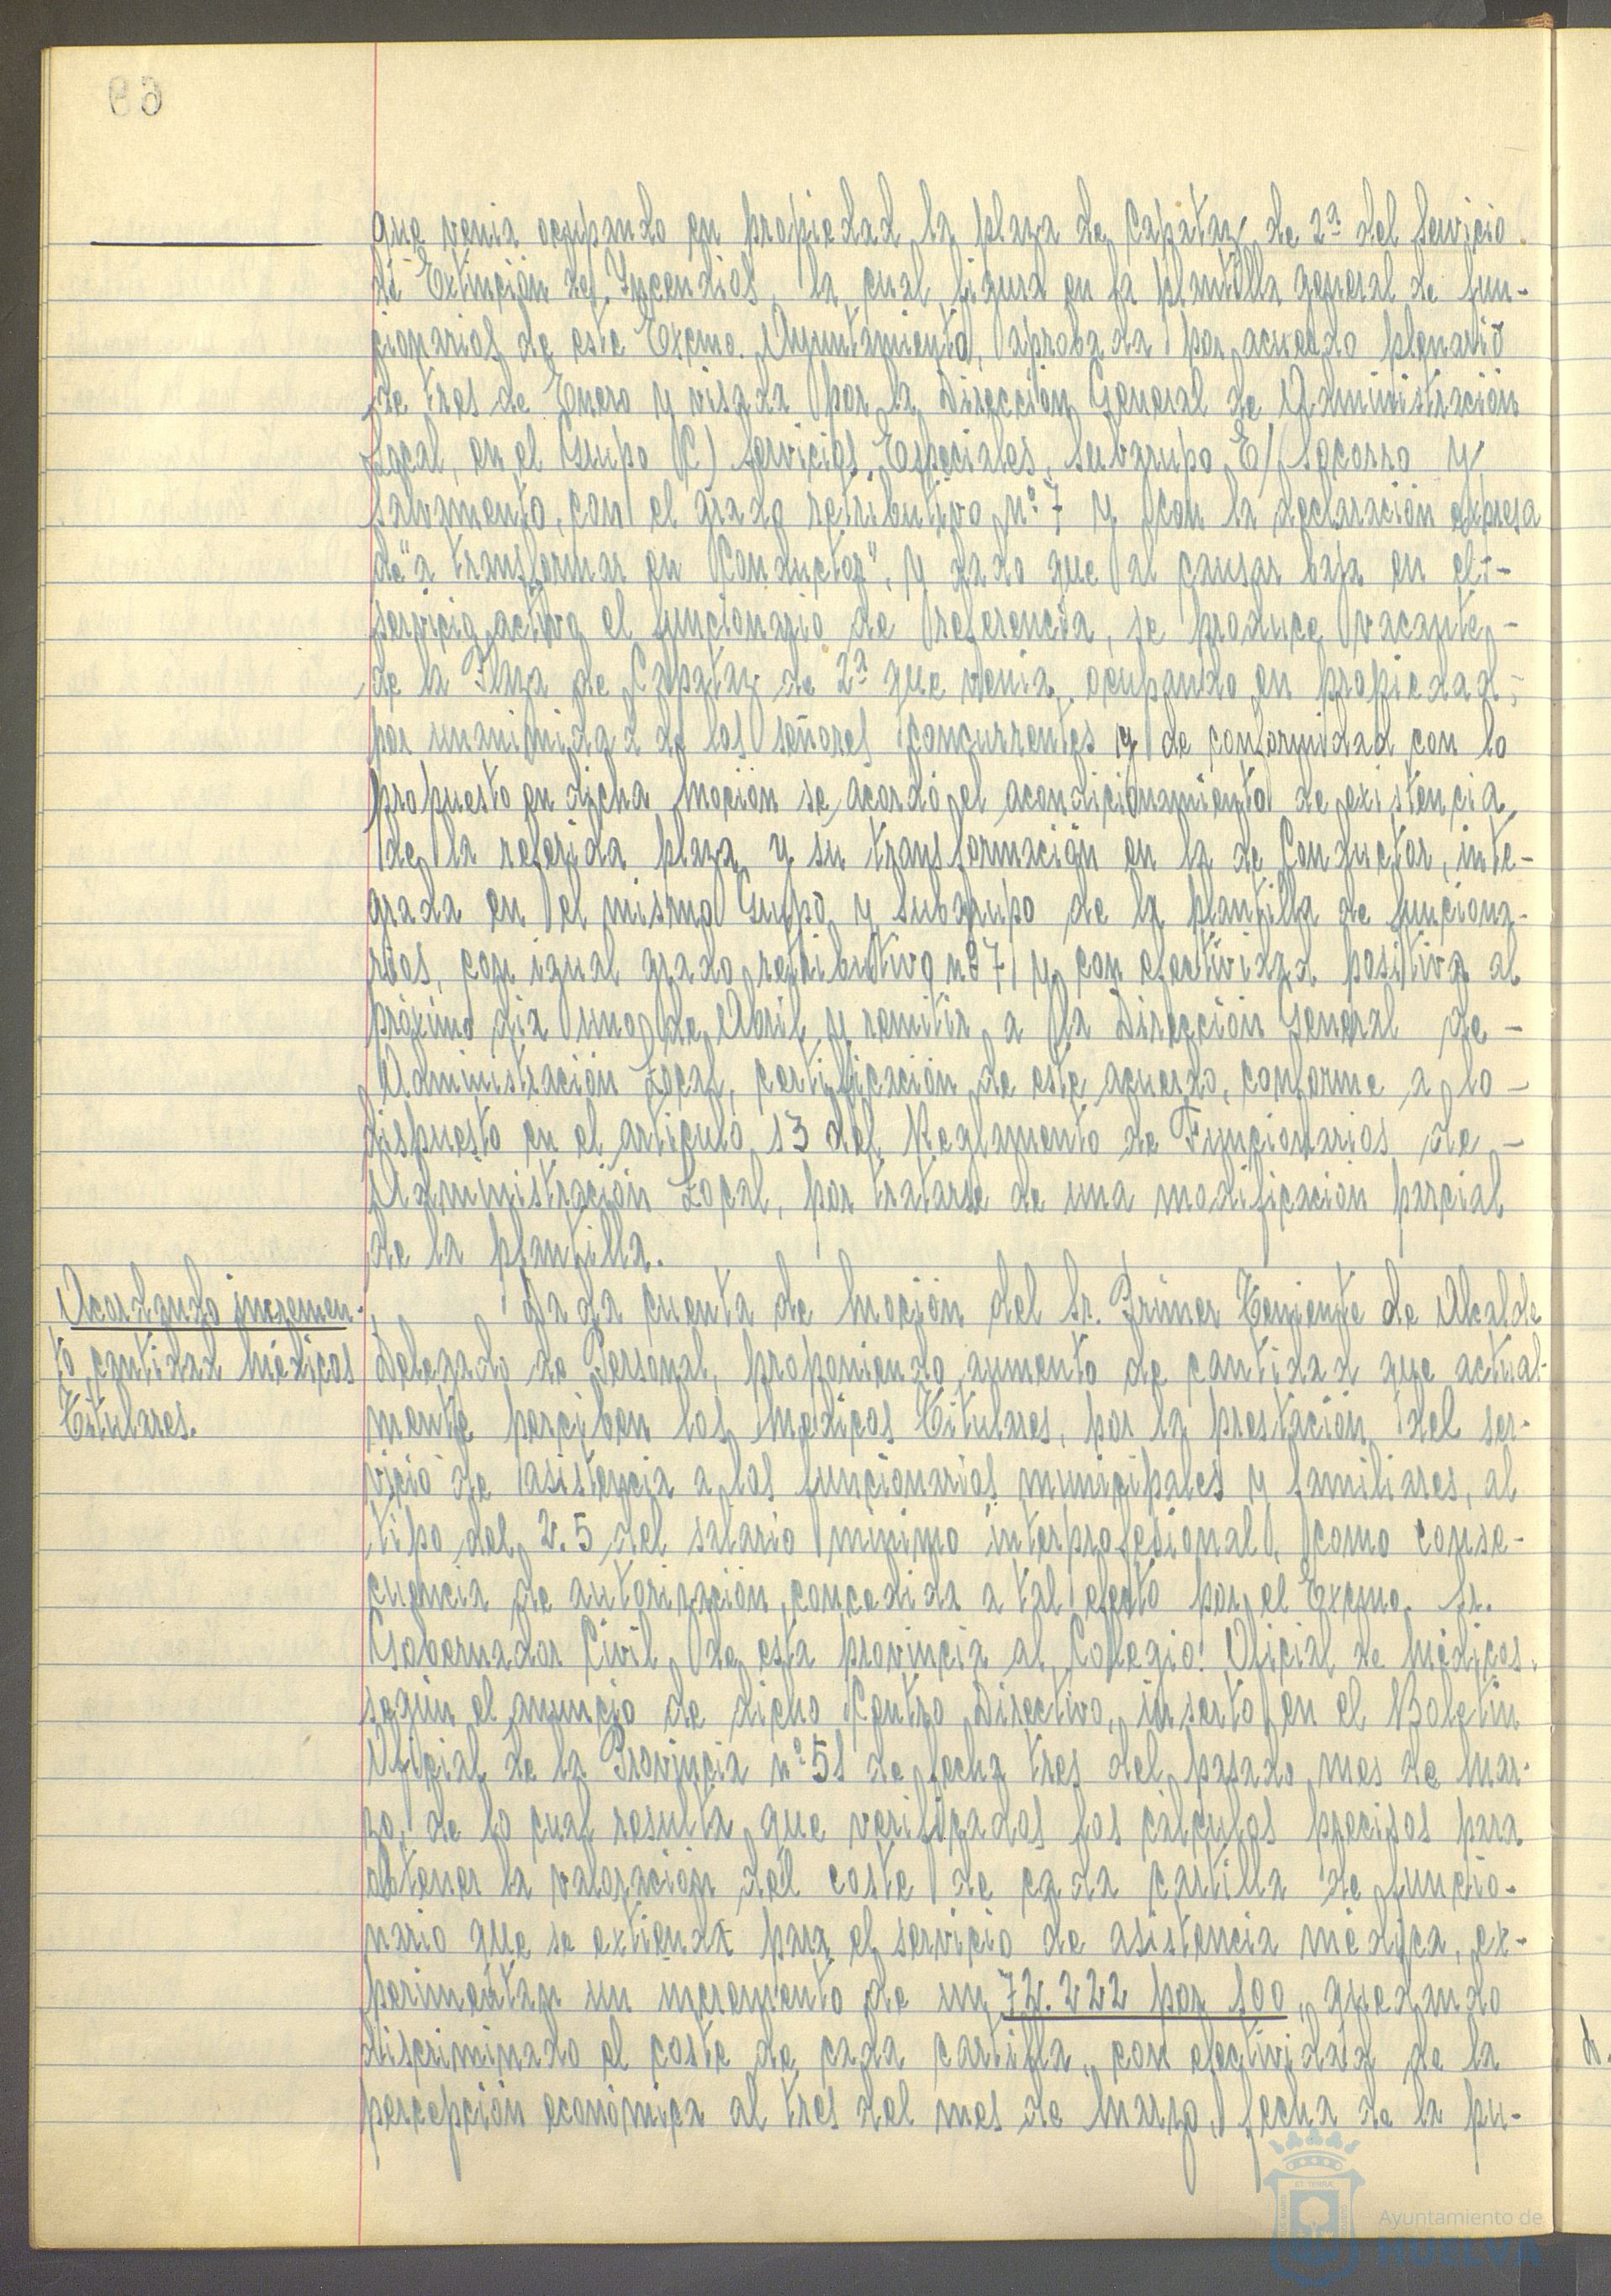 69
que venia ocupando en propiedad la plaza de Capataz de 2ª del Servicio
de Extinción de Incendios, la cual figura en la plantilla general de fun-
cionarios de este Excmo. Ayuntamiento, aprobada por acuerdo plenario
de tres de Enero y visada por la Dirección General de Administración
Local, en el Grupo C) Servicios Especiales, Subgrupo E) Socorro y
salvamento, con el grado retributivo nº 7 y con la declaración expresa
de "a transformar en Conductor", y dado que al causar baja en el -
servicio activo el funcionario de referencia, se produce vacante -
de la Plaza de Capataz de 2ª que venia ocupando en propiedad,
por unanimidad de los señores concurrentes y de conformidad con lo
propuesto en dicha moción se acordó el acondicionamiento de existencia
de la referida plaza y su transformación en la de Conductor, inte-
grada en el mismo Grupo y Subgrupo de la plantilla de funciona-
rios, con igual grado retributivo nº 7 y con efectividad positiva al
próximo dia uno de Abril y remitir a la Dirección General de -
Administración Local, certificación de este acuerdo, conforme a lo -
dispuesto en el artículo 13 del Reglamento de Funcionarios de -
Administración Local, por tratarse de una modificación parcial
de la plantilla.
Acordando incremen-
to cantidad médicos
Titulares.
Dada cuenta de moción del Sr. Primer Teniente de Alcalde
Delegado de Personal, proponiendo aumento de cantidad que actual-
mente perciben los Medicos Titulares, por la prestación del ser-
vicio de asistencia a los funcionarios municipales y familiares, al
tipo del 2.5 del salario minimo interprofesional, como conse-
cuencia de autorización concedida a tal efecto por el Excmo. Sr.
Gobernador Civil de esta provincia al Collegio Oficial de Médicos,
según el anuncio de dicho Centro Directivo, inserto en el Boletin
Oficial de la Provincia nº 51 de fecha tres del pasado mes de Mar-
zo, de lo cual resulta que verificados los cálculos precisos para
obtener la valoración del coste de cada cartilla de funcio-
nario que se extienda para el servicio de asistencia médica, ex-
perimentan un incremento de un 72.222 por 100, quedando
discriminado el coste de cada cartilla, con efectividad de la
percepción económica al tres del mes de Marzo, fecha de la pu-
Ayuntamiento de
HUELVA